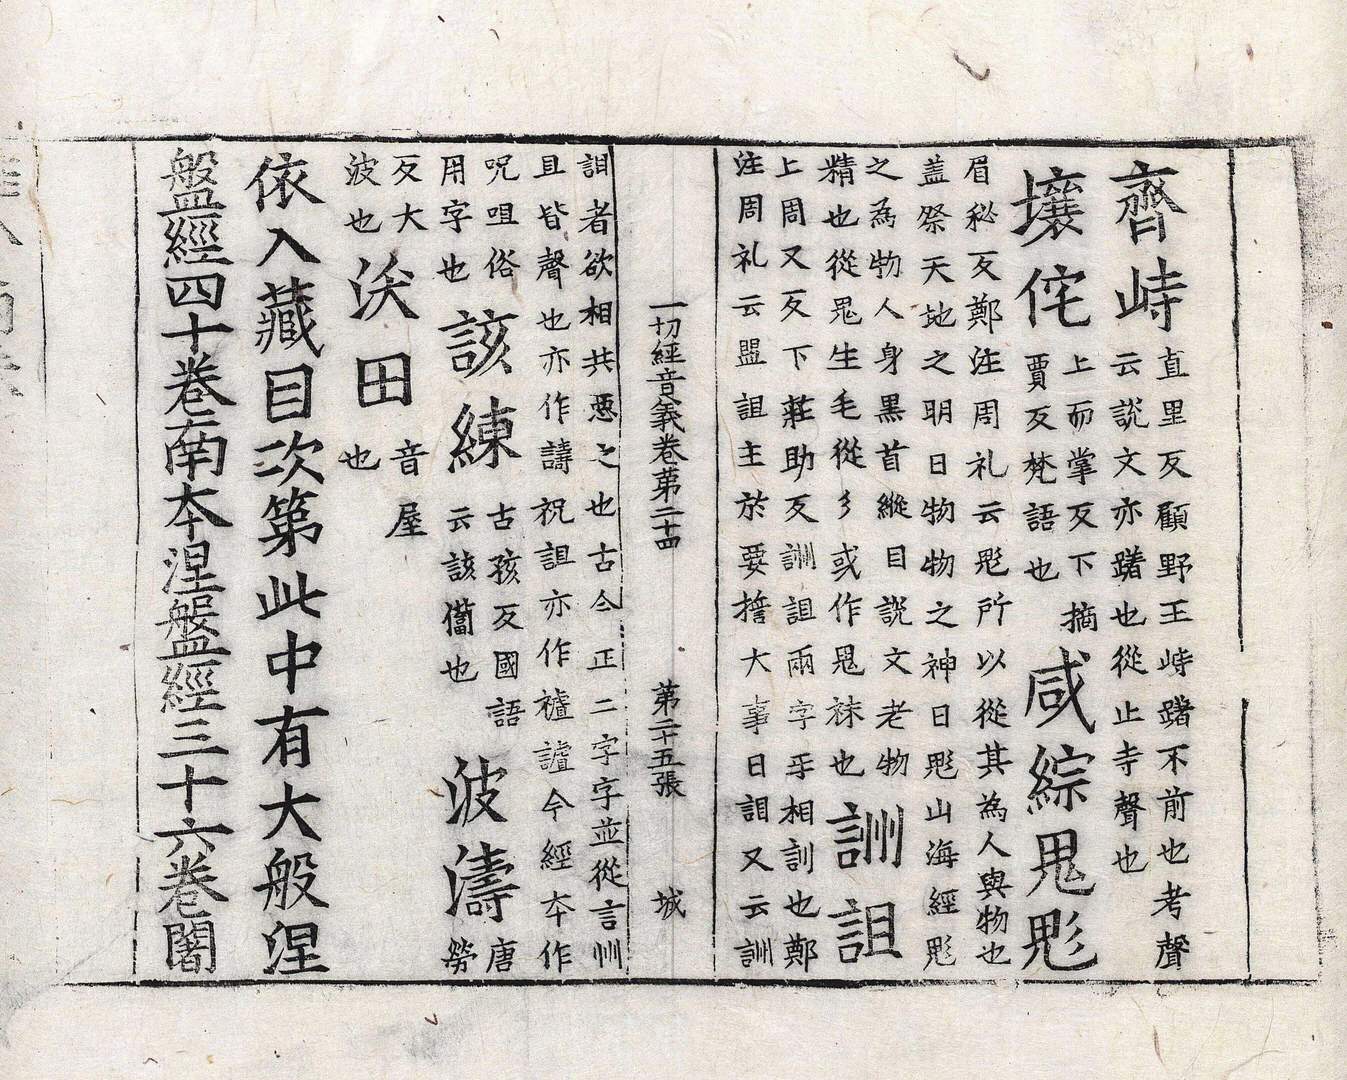 齊峙 直里反顧野王峙躇不前也考聲
云說文亦躇也從止寺聲也
壤侘 上而掌反下摘
賈反梵語也 咸綜鬼鬽
眉秘反鄭注周礼云鬽所以從其為人與物也
盖祭天地之明日物物之神曰鬽山海經鬽
之為物人身黑首縱目說文老物
精也從鬼生毛從彡或作鬼袜也 詶詛
上周又反下莊助反詶詛兩字乎相訓也鄭
注周礼云盟詛主於要擔大事曰詛又云詶
一切經音義卷苐二十四 苐二十五張 城
詛者欲相共惡之也古今正二字字並從言州
且皆聲也亦作譸祝詛亦作𧝬謯今經本作
咒咀俗
用字也 該練 古孩反國語
云該俻也 波濤 唐
勞
反大
波也 沃田 音屋
也
依入藏目次第此中有大般涅
盤經四十卷南本涅盤經三十六卷闍